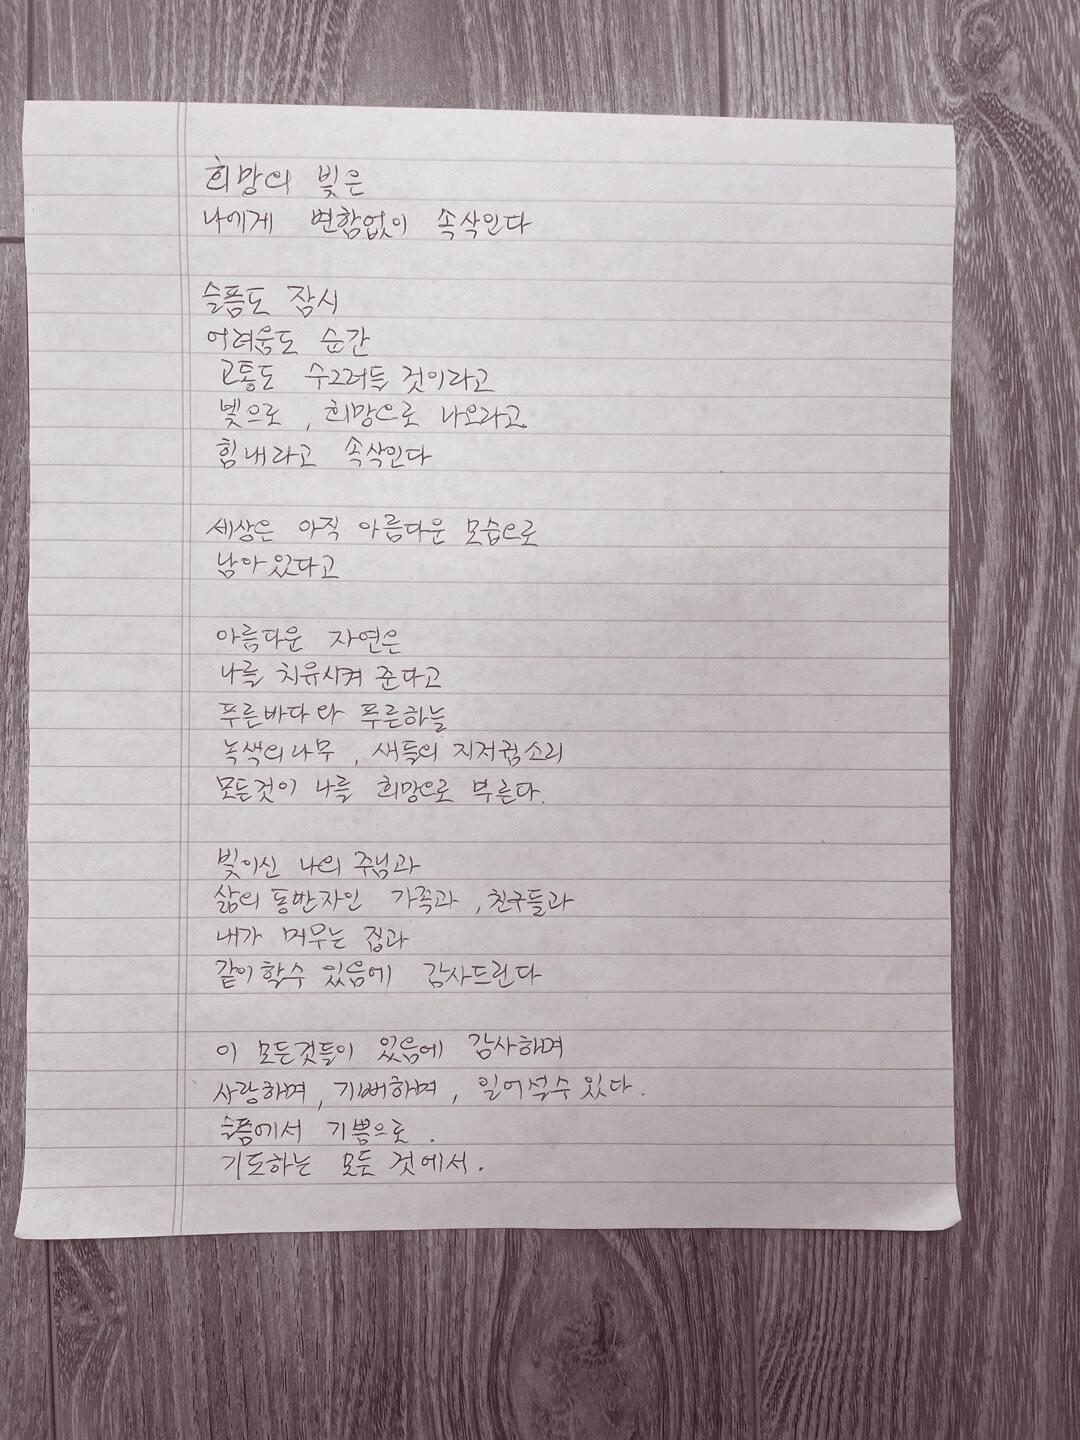 희망의 빛은
나에게 변함없이 속삭인다
슬픔도 잠시
어려움도 순간
고통도 수그러들 것이라고
빛으로, 희망으로 나오라고
힘내라고 속삭인다
세상은 아직 아름다운 모습으로
남아있다고
아름다운 자연은
나를 치유시켜 준다고
푸른바다와 푸른하늘
녹색의나무, 새들의 지저귐소리
모든것이 나를 희망으로 부른다.
빛이신 나의 주님과
삶의 동반자인 가족과, 친구들과
내가 머무는 집과
같이할수 있음에 감사드린다
이 모든것들이 있음에 감사하며
사랑하며, 기뻐하며, 일어설수있다.
슬픔에서 기쁨으로.
기도하는 모든 것에서.